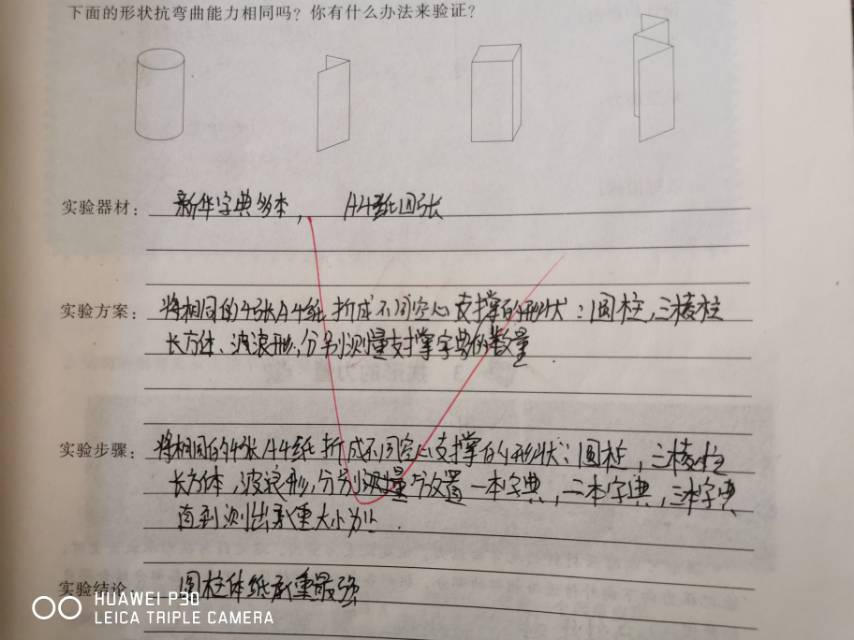 下面的形状抗弯曲能力相同吗？你有什么办法来验证？
实验器材：新华字典多本，　A4纸四张
实验方案：将相同的4张A4纸折成不同空心支撑的形状：圆柱，三棱柱
长方体、波浪形，分别测量支撑字典的数量
实验步骤：将相同的4张A4纸折成不同空心支撑的形状：圆柱，三棱柱
长方体，波浪形，分别放置一本字典，二本字典，三本字典
直到测出承重大小为止．
实验结论：圆柱体纸承重最强
HUAWEI P30
LEICA TRIPLE CAMERA